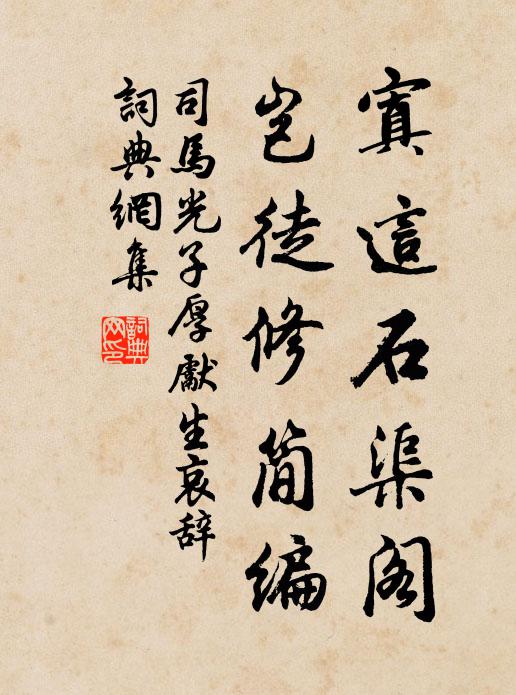 寘這石渠閣
豈徒修簡編
司馬光子厚獻生哀辞
詞典網集
詞典网印